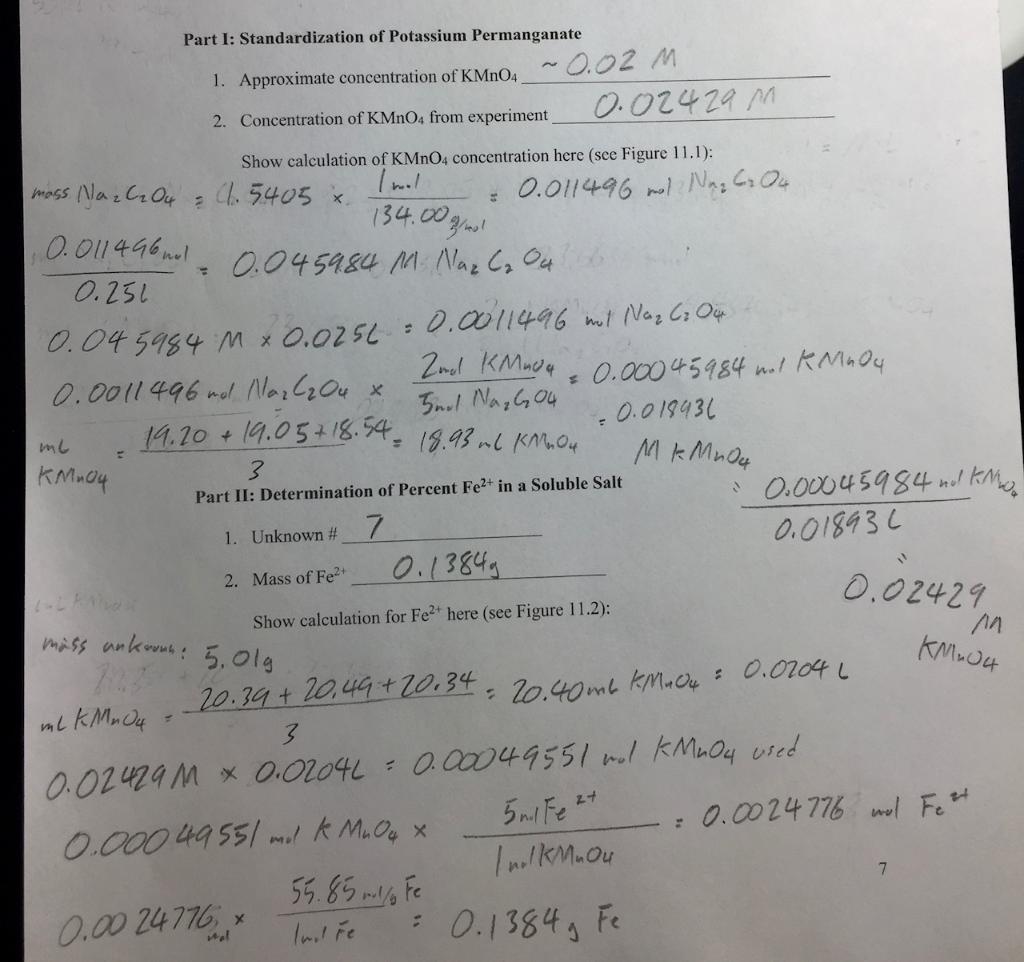 Part I: Standardization of Potassium Permanganate
1. Approximate concentration of KMnO₄ ~ 0.02 M
2. Concentration of KMnO₄ from experiment 0.02429 M
Show calculation of KMnO₄ concentration here (see Figure 11.1):
mass Na₂C₂O₄ = 1.5405 × 1 mol / 134.00 g/mol = 0.011496 mol Na₂C₂O₄
0.011496 mol / 0.25L = 0.045984 M Na₂C₂O₄
0.045984 M × 0.025L = 0.0011496 mol Na₂C₂O₄
0.0011496 mol Na₂C₂O₄ × 2mol KMnO₄ / 5mol Na₂C₂O₄ = 0.00045984 mol KMnO₄
mL KMnO₄ = 19.20 + 19.05 + 18.54 / 3 = 18.93 mL KMnO₄ = 0.01893L
M KMnO₄ = 0.00045984 mol KMnO₄ / 0.01893 L = 0.02429 M KMnO₄
Part II: Determination of Percent Fe²⁺ in a Soluble Salt
1. Unknown # 7
2. Mass of Fe²⁺ 0.1384g
Show calculation for Fe²⁺ here (see Figure 11.2):
mass unknown: 5.01g
mL KMnO₄ = 20.39 + 20.49 + 20.34 / 3 = 20.40 mL KMnO₄ = 0.0204 L
0.02429 M × 0.0204L = 0.00049551 mol KMnO₄ used
0.00049551 mol KMnO₄ × 5mol Fe²⁺ / 1mol KMnO₄ = 0.0024776 mol Fe²⁺
0.0024776 mol × 55.85 mol/g Fe / 1mol Fe = 0.1384 g Fe
7